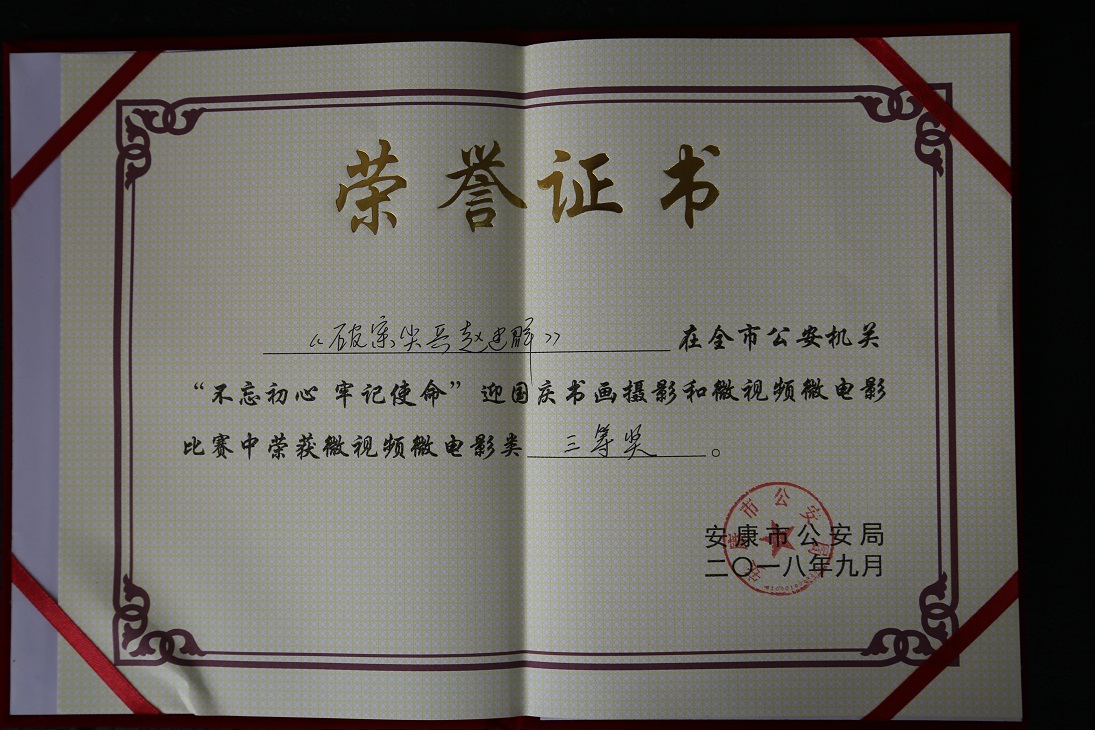 荣誉证书
《破案尖兵赵建群》在全市公安机关
“不忘初心 牢记使命”迎国庆书画摄影和微视频微电影
比赛中荣获微视频微电影类三等奖。
安康市公安局
安康市公安局
二〇一八年九月